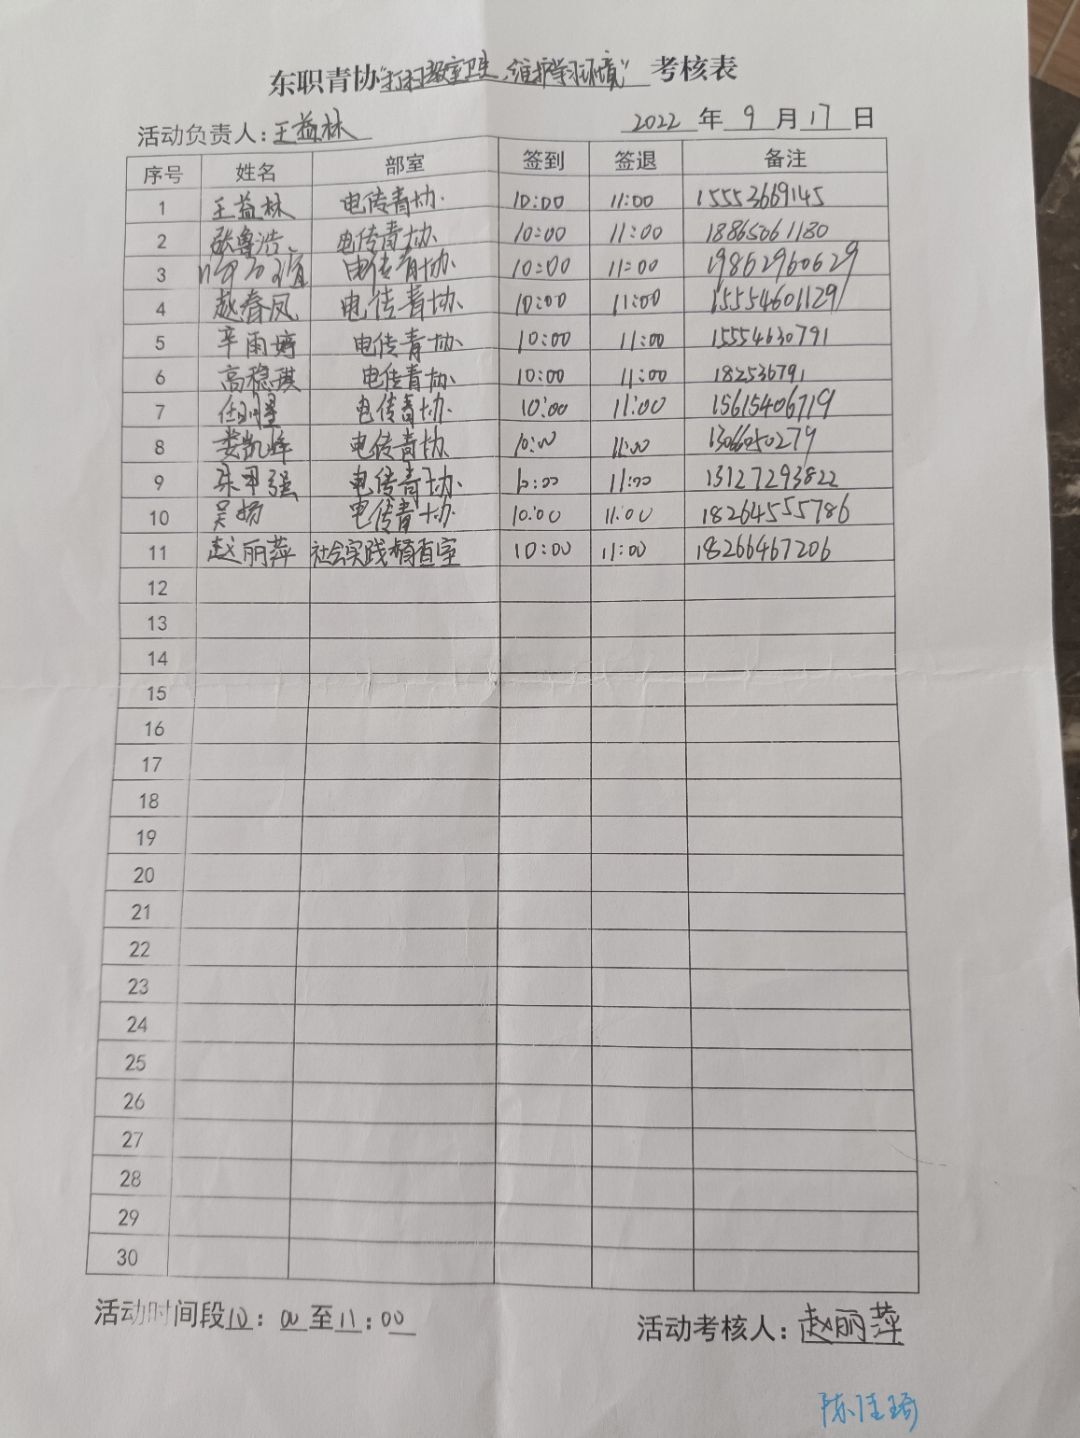 东职青协"打扫教室卫生,维护学习环境"考核表
活动负责人:王益林 2022年9月17日
序号 姓名 部室 签到 签退 备注
1 王益林 电传青协 10:00 11:00 15553669145
2 张鲁浩 电传青协 10:00 11:00 18865061180
3 电传青协 10:00 11:00 19862960629
4 赵春凤 电传青协 10:00 11:00 15554601129
5 辛雨婷 电传青协 10:00 11:00 15554630791
6 高稳琪 电传青协 10:00 11:00 182536791
7 电传青协 10:00 11:00 15615406719
8 娄凯峰 电传青协 10:00 11:00 1306050279
9 强 电传青协 10:00 11:00 13127293822
10 吴杨 电传青协 10:00 11:00 18264555786
11 赵丽萍 社会实践稽查室 10:00 11:00 18266467206
12
13
14
15
16
17
18
19
20
21
22
23
24
25
26
27
28
29
30
活动时间段10:00至11:00 活动考核人:赵丽萍
陈佳琦